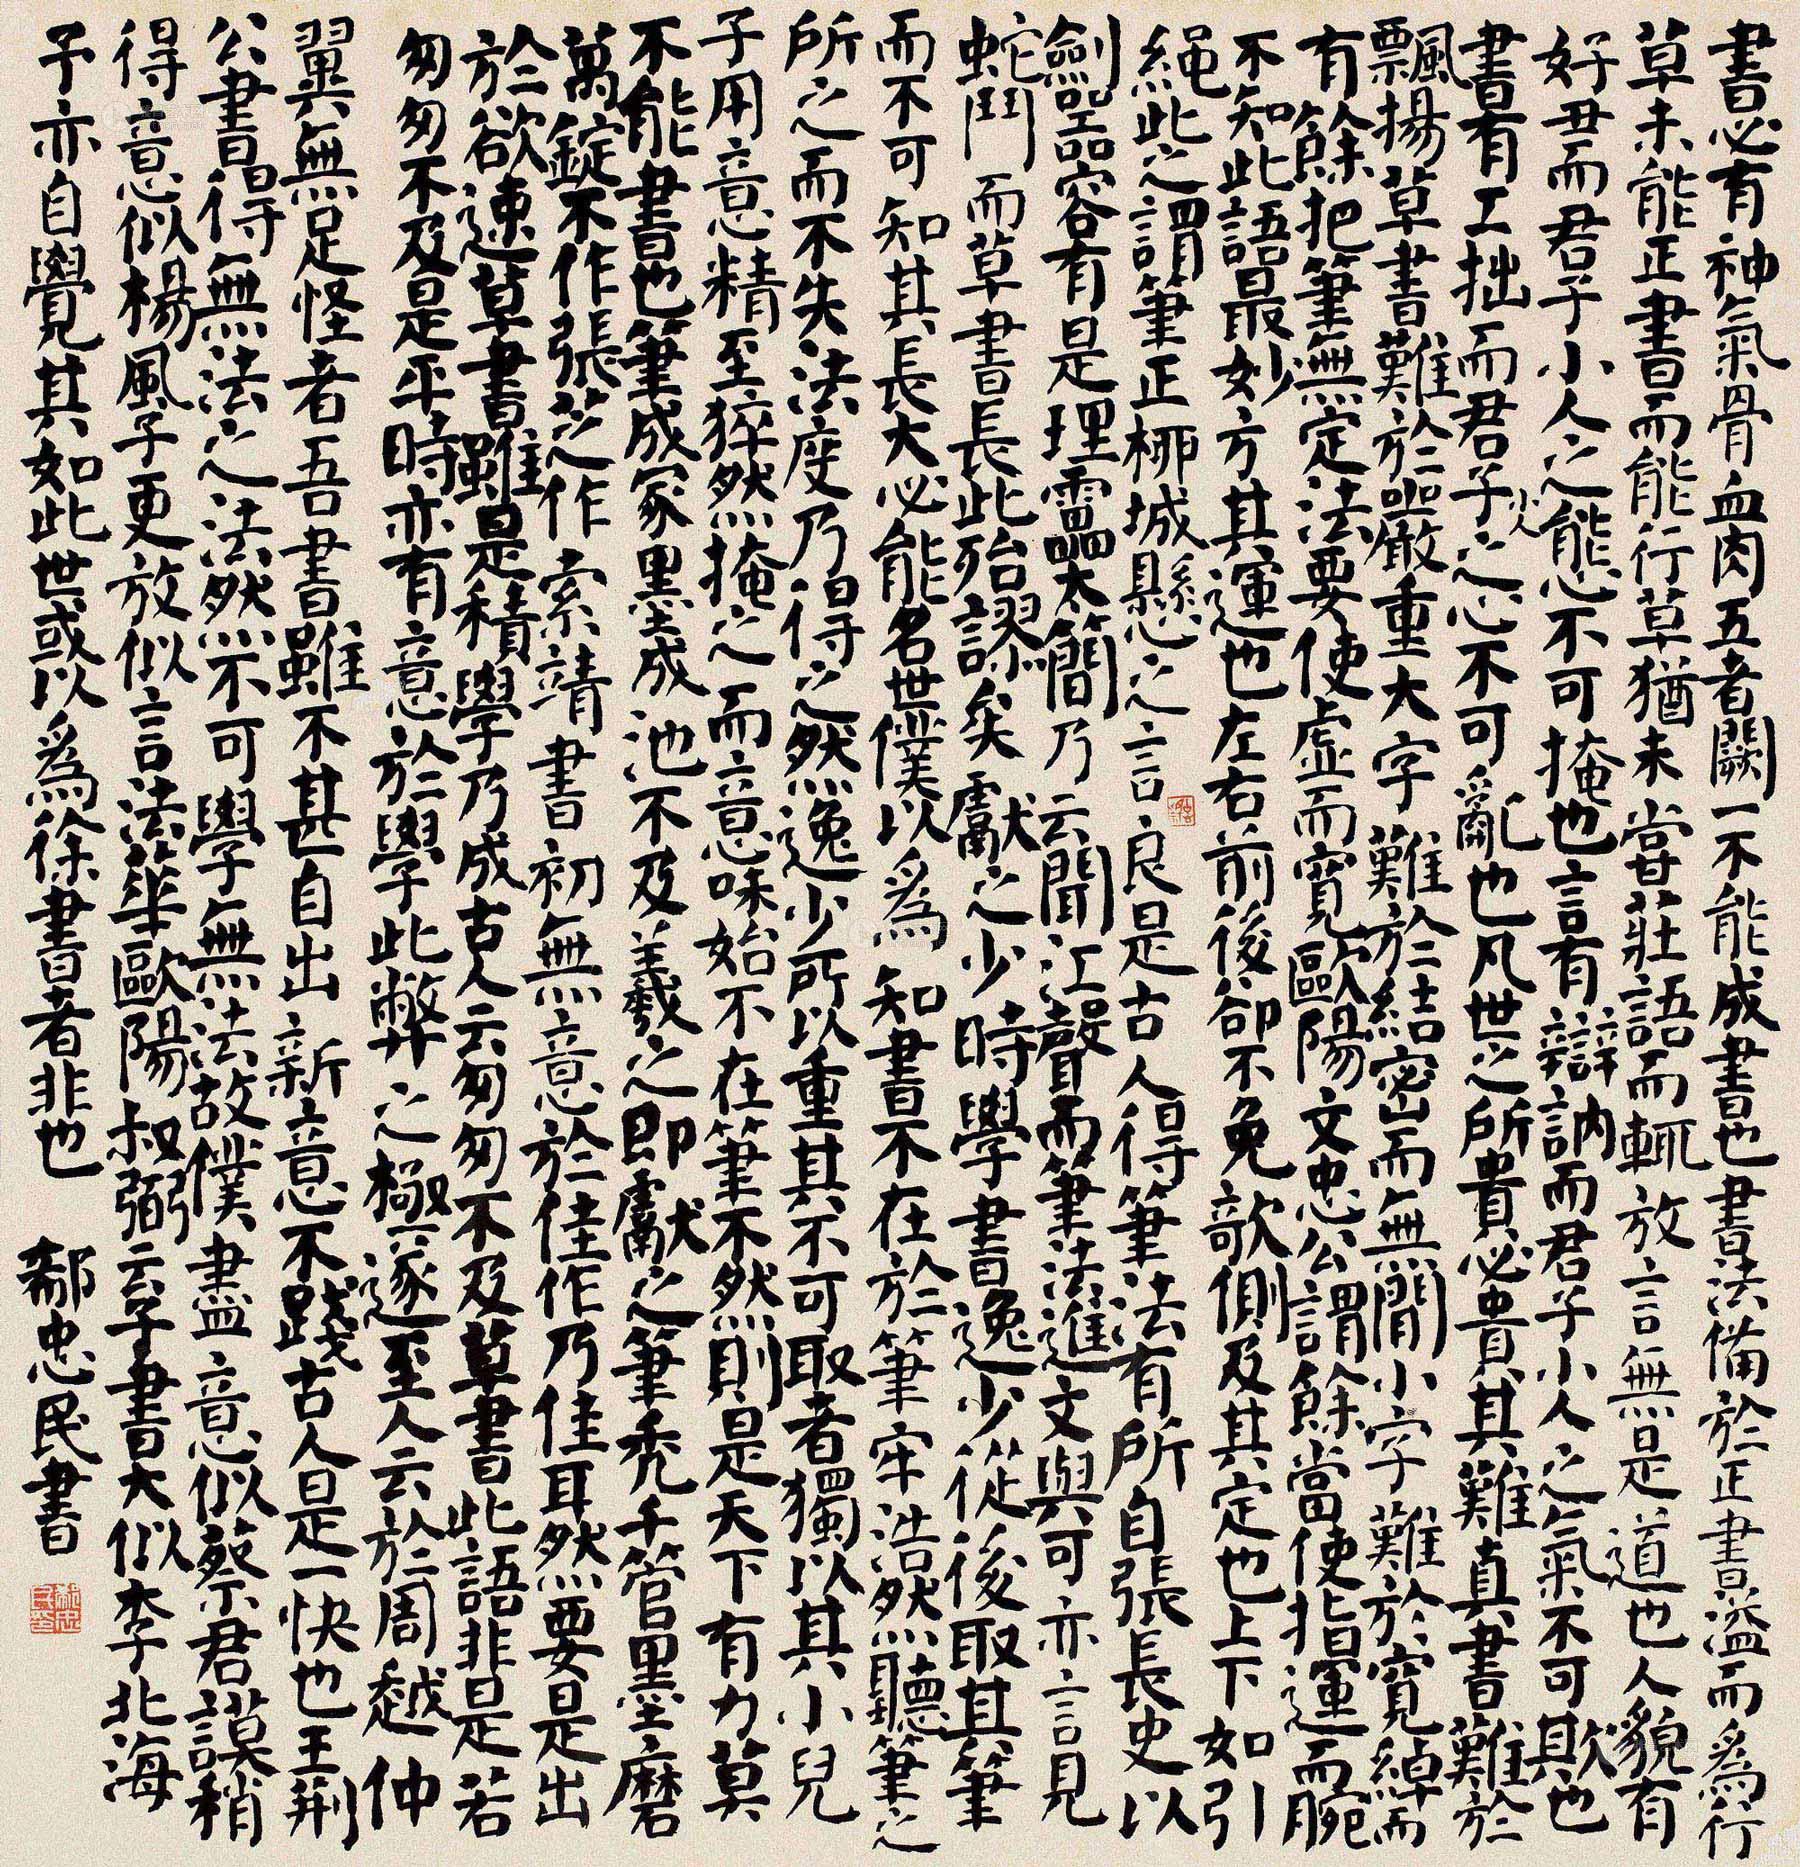 書必有神氣骨血肉五者闕一不能成書也書法備於正書溢而爲行
草未能正書而能行草猶未嘗莊語而輒放言無是道也人貌有
好丑而君子小人之態不可掩也言有辯訥而君子小人之氣不可欺也
書有工拙而君子小人之心不可亂也凡世之所貴必貴其難真書難於
飄揚草書難於嚴重大字難於結密而無間小字難於寬綽而
有餘把筆無定法要使虛而寬歐陽文忠公謂餘當使指運而腕
不知此語最妙方其運也左右前後卻不免欹側及其定也上下如引
繩此之謂筆正柳城懸之言良是古人得筆法有所自張長史以
劍器容有是理雷太簡乃云聞江聲而筆法進文與可亦言見
蛇鬥而草書長此殆謬矣獻之少時學書逸少從後取其筆
而不可知其長大必能名世僕以爲知書不在於筆牢浩然聽筆之
所之而不失法度乃得之然逸少所以重其不可取者獨以其小兒
子用意精至猝然掩之而意味始不在筆不然則是天下有力莫
不能書也筆成冢墨成池不及羲之即獻之筆禿千管墨磨
萬錠不作張芝作索靖書初無意於佳作乃佳耳然要是出
於欲速草書雖是積學乃成古人云匆匆不及草書此語非是若
匆匆不及是平時亦有意於學此弊之極遂至人云於周越仲
翼無足怪者吾書雖不甚自出新意不踐古人是一快也王荊
公書得無法之法然不可學無法故僕盡意似蔡君謨稍
得意似楊風子更放似言法華歐陽叔弼云子書大似李北海
予亦自覺其如此世或以爲徐書者非也 鄢忠民書